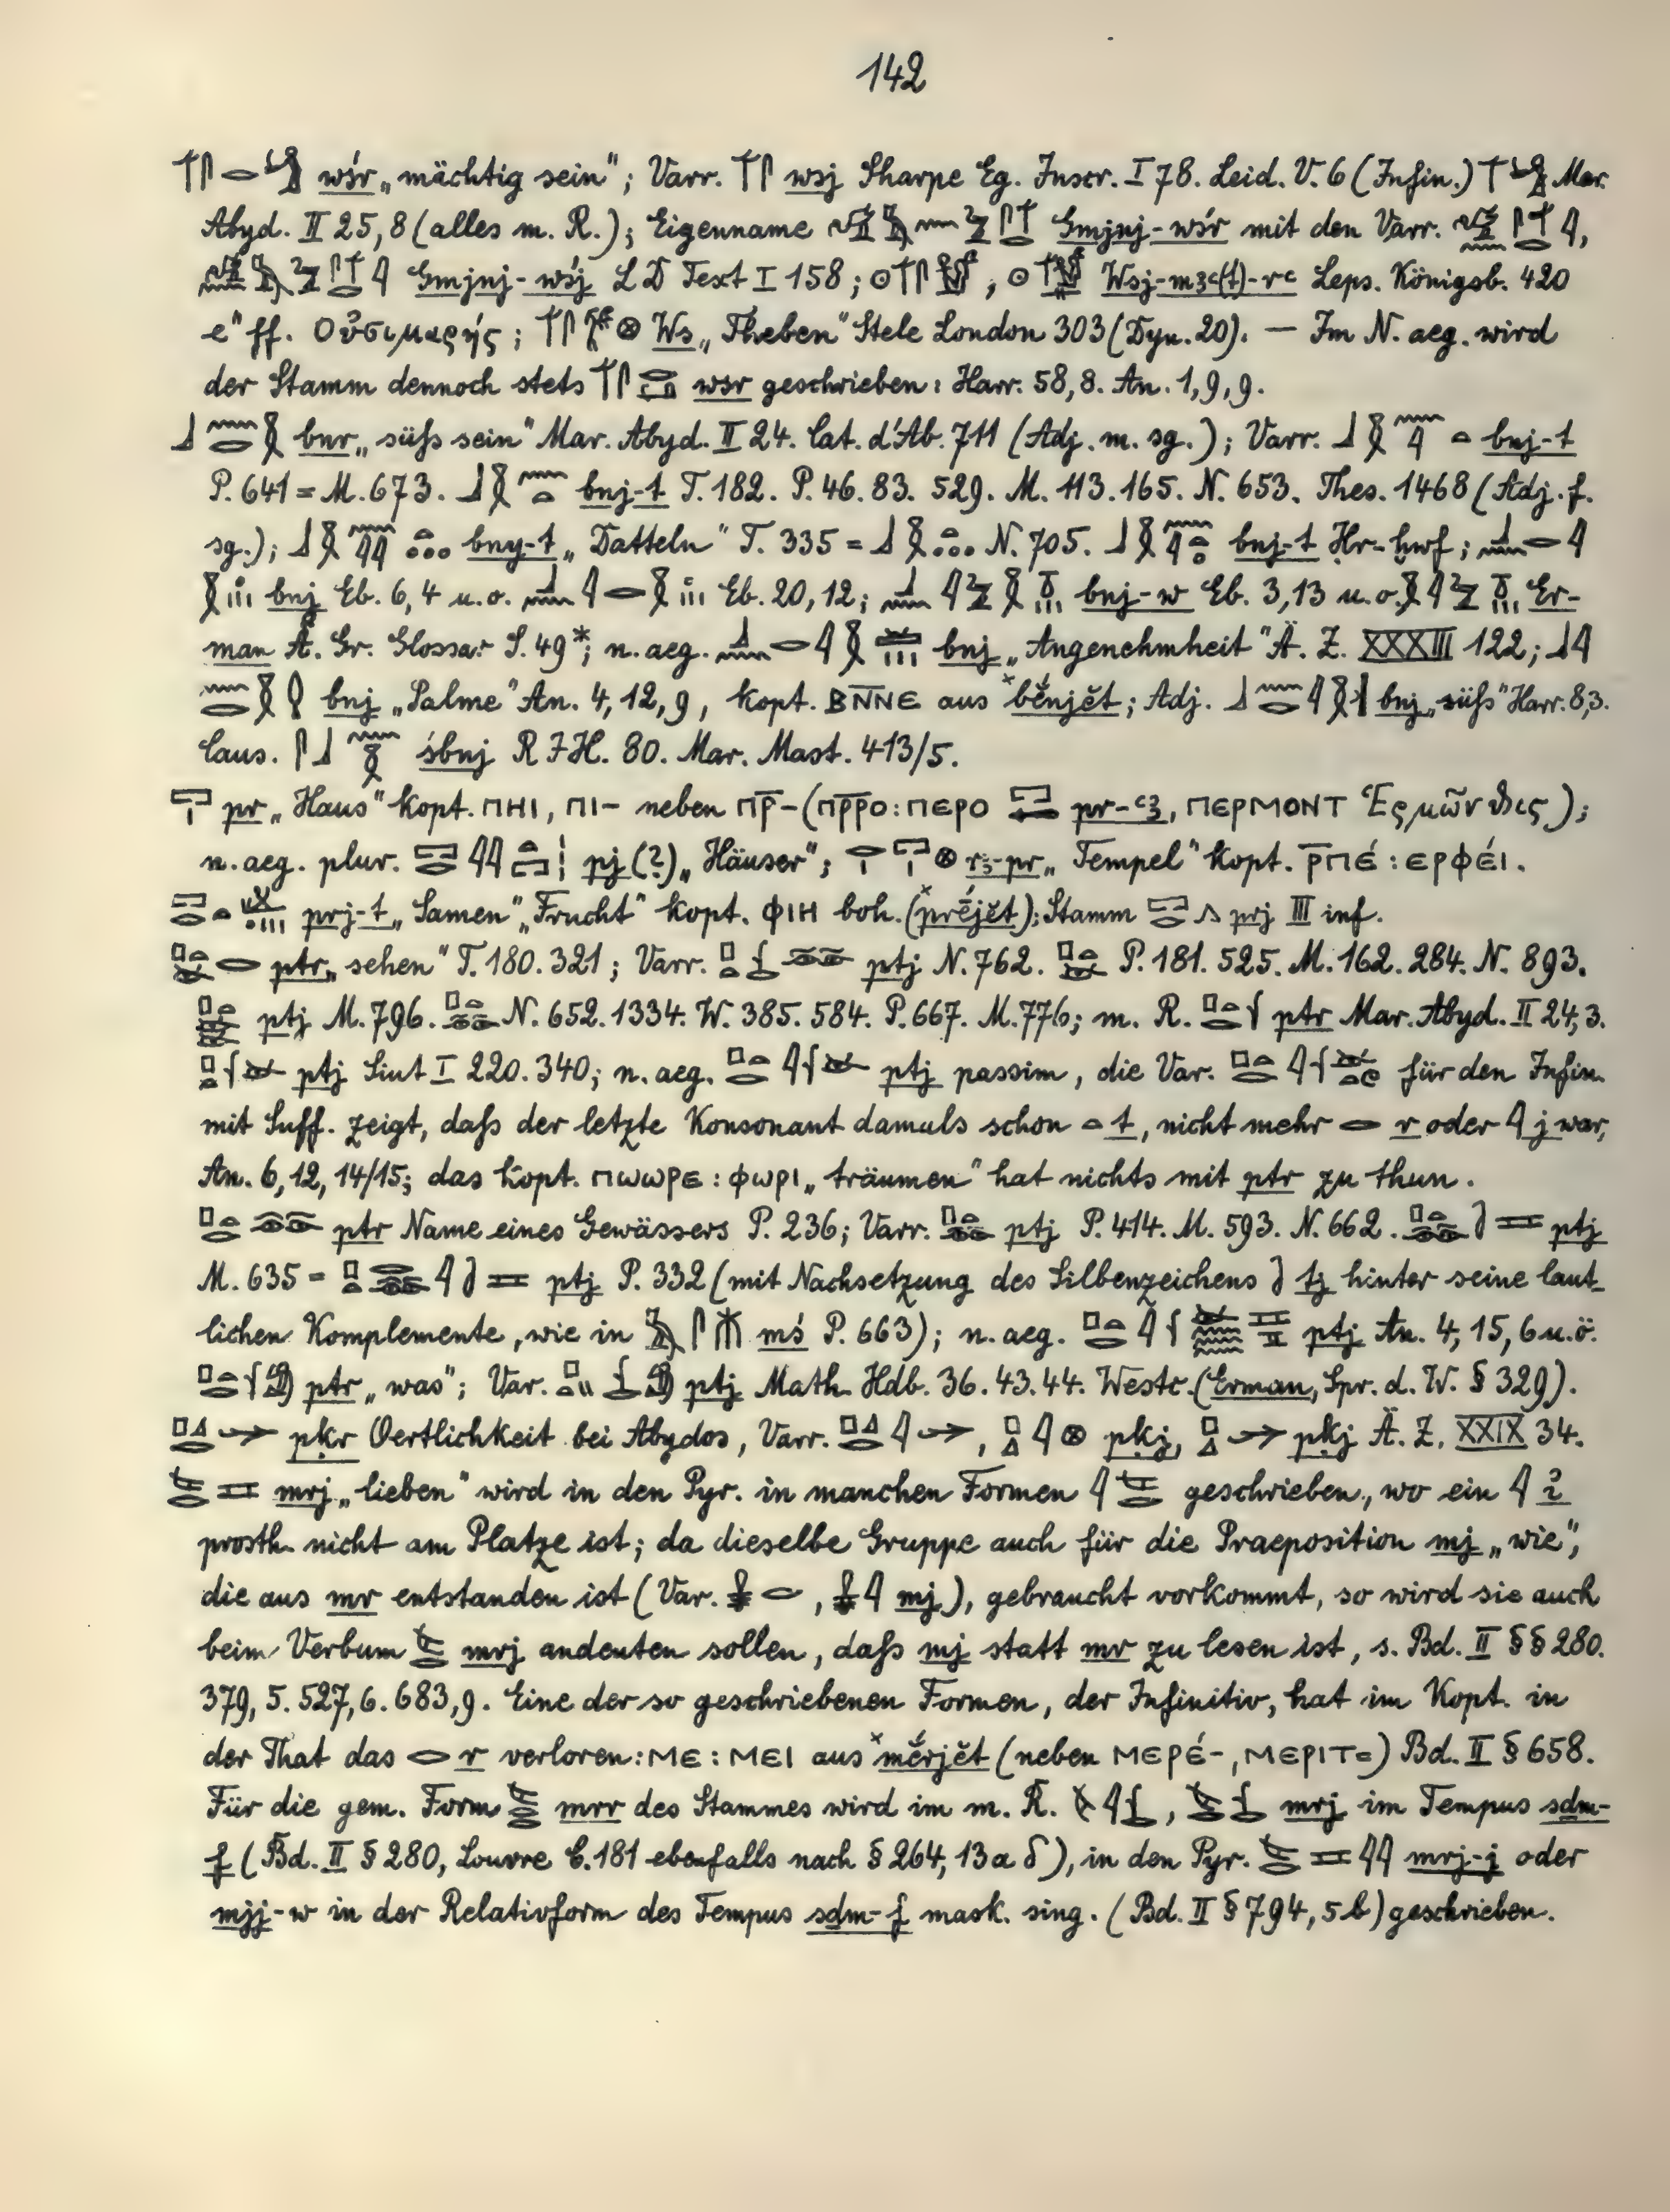 142
wśr „mächtig sein"; Varr. wsj Sharpe Eg. Inscr. I 78. Leid. V. 6 (Infin.) Mar.
Abyd. II 25,8 (alles m. R.); Eigenname Gmjnj-wśr mit den Varr.
Gmjnj-wśj L D Text I 158; Wsj-mꜣꜥ(t)-rꜥ Leps. Königsb. 420
e" ff. Οὐσιμαρής; Ws „Theben" Stele London 303 (Dyn. 20). — Im N. aeg. wird
der Stamm dennoch stets wsr geschrieben: Harr. 58,8. An. 1,9,9.
bnr „süſs sein" Mar. Abyd. II 24. Cat. d'Ab. 711 (Adj. m. sg.); Varr. bnj-t
P. 641 = M. 673. bnj-t T. 182. P. 46. 83. 529. M. 113. 165. N. 653. Thes. 1468 (Adj. f.
sg.); bny-t „Datteln" T. 335 = N. 705. bnj-t Ḥr-ḫwf;
bnj Eb. 6,4 u. o. Eb. 20,12; bnj-w Eb. 3,13 u. o. Er-
man Ä. Gr. Glossar S. 49*; n. aeg. bnj „Angenehmheit" Ä. Z. XXXIII 122;
bnj „Palme" An. 4,12,9, kopt. ⲂⲚ̅ⲚⲈ aus ˣbĕ́njĕt; Adj. bnj „süſs" Harr. 8,3.
Caus. śbnj R I H. 80. Mar. Mast. 413/5.
pr „Haus" kopt. ⲠⲎⲒ, ⲠⲒ- neben ⲠⲢ̅- (ⲠⲢ̅ⲢⲞ : ⲠⲈⲢⲞ pr-ꜥꜣ, ⲠⲈⲢⲘⲞⲚⲦ Ἑρμῶνθις);
n. aeg. plur. pj (?) „Häuser"; rꜣ-pr „Tempel" kopt. Ⲣ̅ⲠⲈ́ : ⲈⲢⲪⲈ́Ⲓ.
prj-t „Samen" „Frucht" kopt. ⲪⲒⲎ boh. (ˣpréjĕt); Stamm prj III inf.
ptr „sehen" T. 180. 321; Varr. ptj N. 762. P. 181. 525. M. 162. 284. N. 893.
ptj M. 796. N. 652. 1334. W. 385. 584. P. 667. M. 776; m. R. ptr Mar. Abyd. II 24,3.
ptj Siut I 220. 340; n. aeg. ptj passim, die Var. für den Infin.
mit Suff. zeigt, daſs der letzte Konsonant damals schon t, nicht mehr r oder j war,
An. 6,12,14/15; das kopt. ⲠⲰⲰⲢⲈ : ⲪⲰⲢⲒ „träumen" hat nichts mit ptr zu thun.
ptr Name eines Gewässers P. 236; Varr. ptj P. 414. M. 593. N. 662. ptj
M. 635 = ptj P. 332 (mit Nachsetzung des Silbenzeichens tj hinter seine laut-
lichen Komplemente, wie in mś P. 663); n. aeg. ptj An. 4,15,6 u. ö.
ptr „was"; Var. ptj Math. Hdb. 36. 43. 44. Westc. (Erman, Spr. d. W. § 329).
pḳr Oertlichkeit bei Abydos, Varr. , pḳj, pḳj Ä. Z. XXIX 34.
mrj „lieben" wird in den Pyr. in manchen Formen geschrieben, wo ein i̓
prosth. nicht am Platze ist; da dieselbe Gruppe auch für die Praeposition mj „wie",
die aus mr entstanden ist (Var. , mj), gebraucht vorkommt, so wird sie auch
beim Verbum mrj andeuten sollen, daſs mj statt mr zu lesen ist, s. Bd. II §§ 280.
379, 5. 527, 6. 683, 9. Eine der so geschriebenen Formen, der Infinitiv, hat im Kopt. in
der That das r verloren: ⲘⲈ : ⲘⲈⲒ aus ˣmĕ́rjĕt (neben ⲘⲈⲢⲈ́-, ⲘⲈⲢⲒⲦ=) Bd. II § 658.
Für die gem. Form mrr des Stammes wird im m. R. , mrj im Tempus sḏm-
f (Bd. II § 280, Louvre C. 181 ebenfalls nach § 264, 13 a δ), in den Pyr. mrj-j oder
mjj-w in der Relativform des Tempus sḏm-f mask. sing. (Bd. II § 794, 5 b) geschrieben.